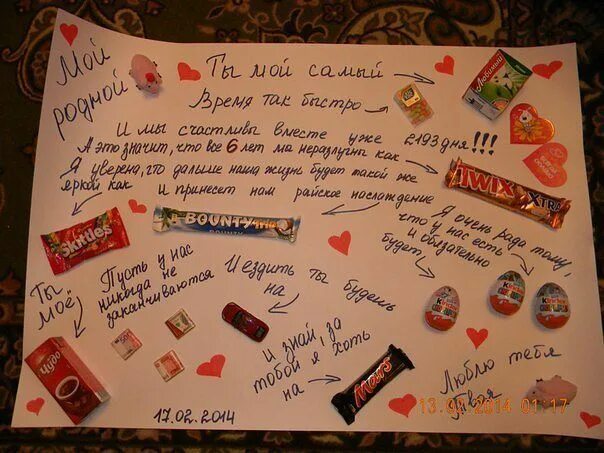 Мой родной
Ты мой самый
Любимый
Время так быстро
tic tac
И мы счастливы вместе уже 2193 дня!!!
А это значит, что все 6 лет мы неразлучны как
TWIX XTRA
Я уверена, что дальше наша жизнь будет такой же
яркой как
Skittles
И принесет нам райское наслаждение
BOUNTY
Я очень рада тому,
что у нас есть
и обязательно
будет
Kinder
СЮРПРИЗ
Kinder
СЮРПРИЗ
Kinder
СЮРПРИЗ
Ты
моё
Чудо
Пусть у нас
никогда не
заканчиваются
И ездить ты будешь
на
И знай, за
тобой я хоть
на
Mars
Люблю тебя
Твоя
17.02.2014
13.02.2014 01:17